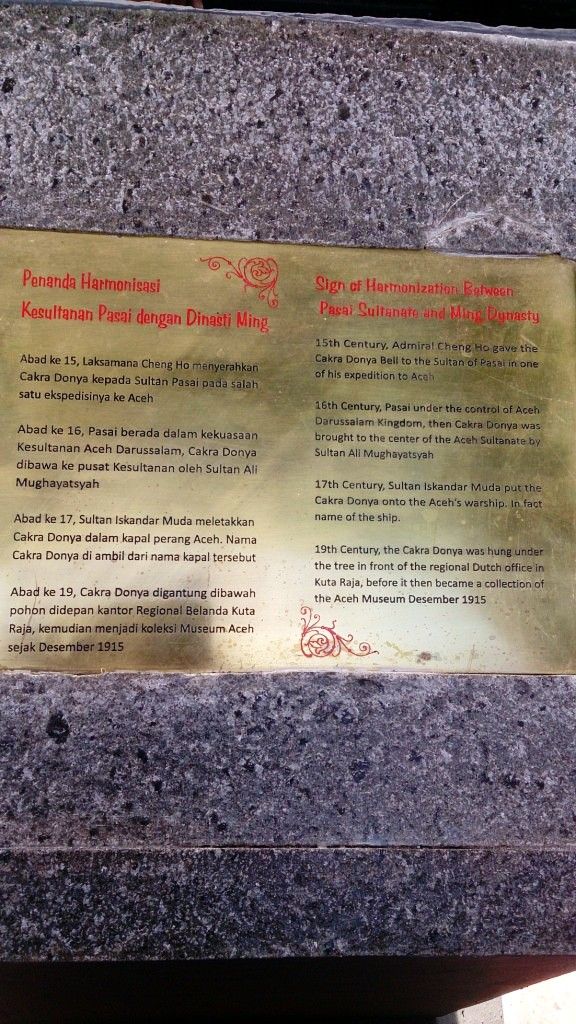 Penanda Harmonisasi
Kesultanan Pasai dengan Dinasti Ming
Abad ke 15, Laksamana Cheng Ho menyerahkan
Cakra Donya kepada Sultan Pasai pada salah
satu ekspedisinya ke Aceh
Abad ke 16, Pasai berada dalam kekuasaan
Kesultanan Aceh Darussalam, Cakra Donya
dibawa ke pusat Kesultanan oleh Sultan Ali
Mughayatsyah
Abad ke 17, Sultan Iskandar Muda meletakkan
Cakra Donya dalam kapal perang Aceh. Nama
Cakra Donya di ambil dari nama kapal tersebut
Abad ke 19, Cakra Donya digantung dibawah
pohon didepan kantor Regional Belanda Kuta
Raja, kemudian menjadi koleksi Museum Aceh
sejak Desember 1915
Sign of Harmonization Between
Pasai Sultanate and Ming Dynasty
15th Century, Admiral Cheng Ho gave the
Cakra Donya Bell to the Sultan of Pasai in one
of his expedition to Aceh
16th Century, Pasai under the control of Aceh
Darussalam Kingdom, then Cakra Donya was
brought to the center of the Aceh Sultanate by
Sultan Ali Mughayatsyah
17th Century, Sultan Iskandar Muda put the
Cakra Donya onto the Aceh's warship. In fact
name of the ship.
19th Century, the Cakra Donya was hung under
the tree in front of the regional Dutch office in
Kuta Raja, before it then became a collection of
the Aceh Museum Desember 1915